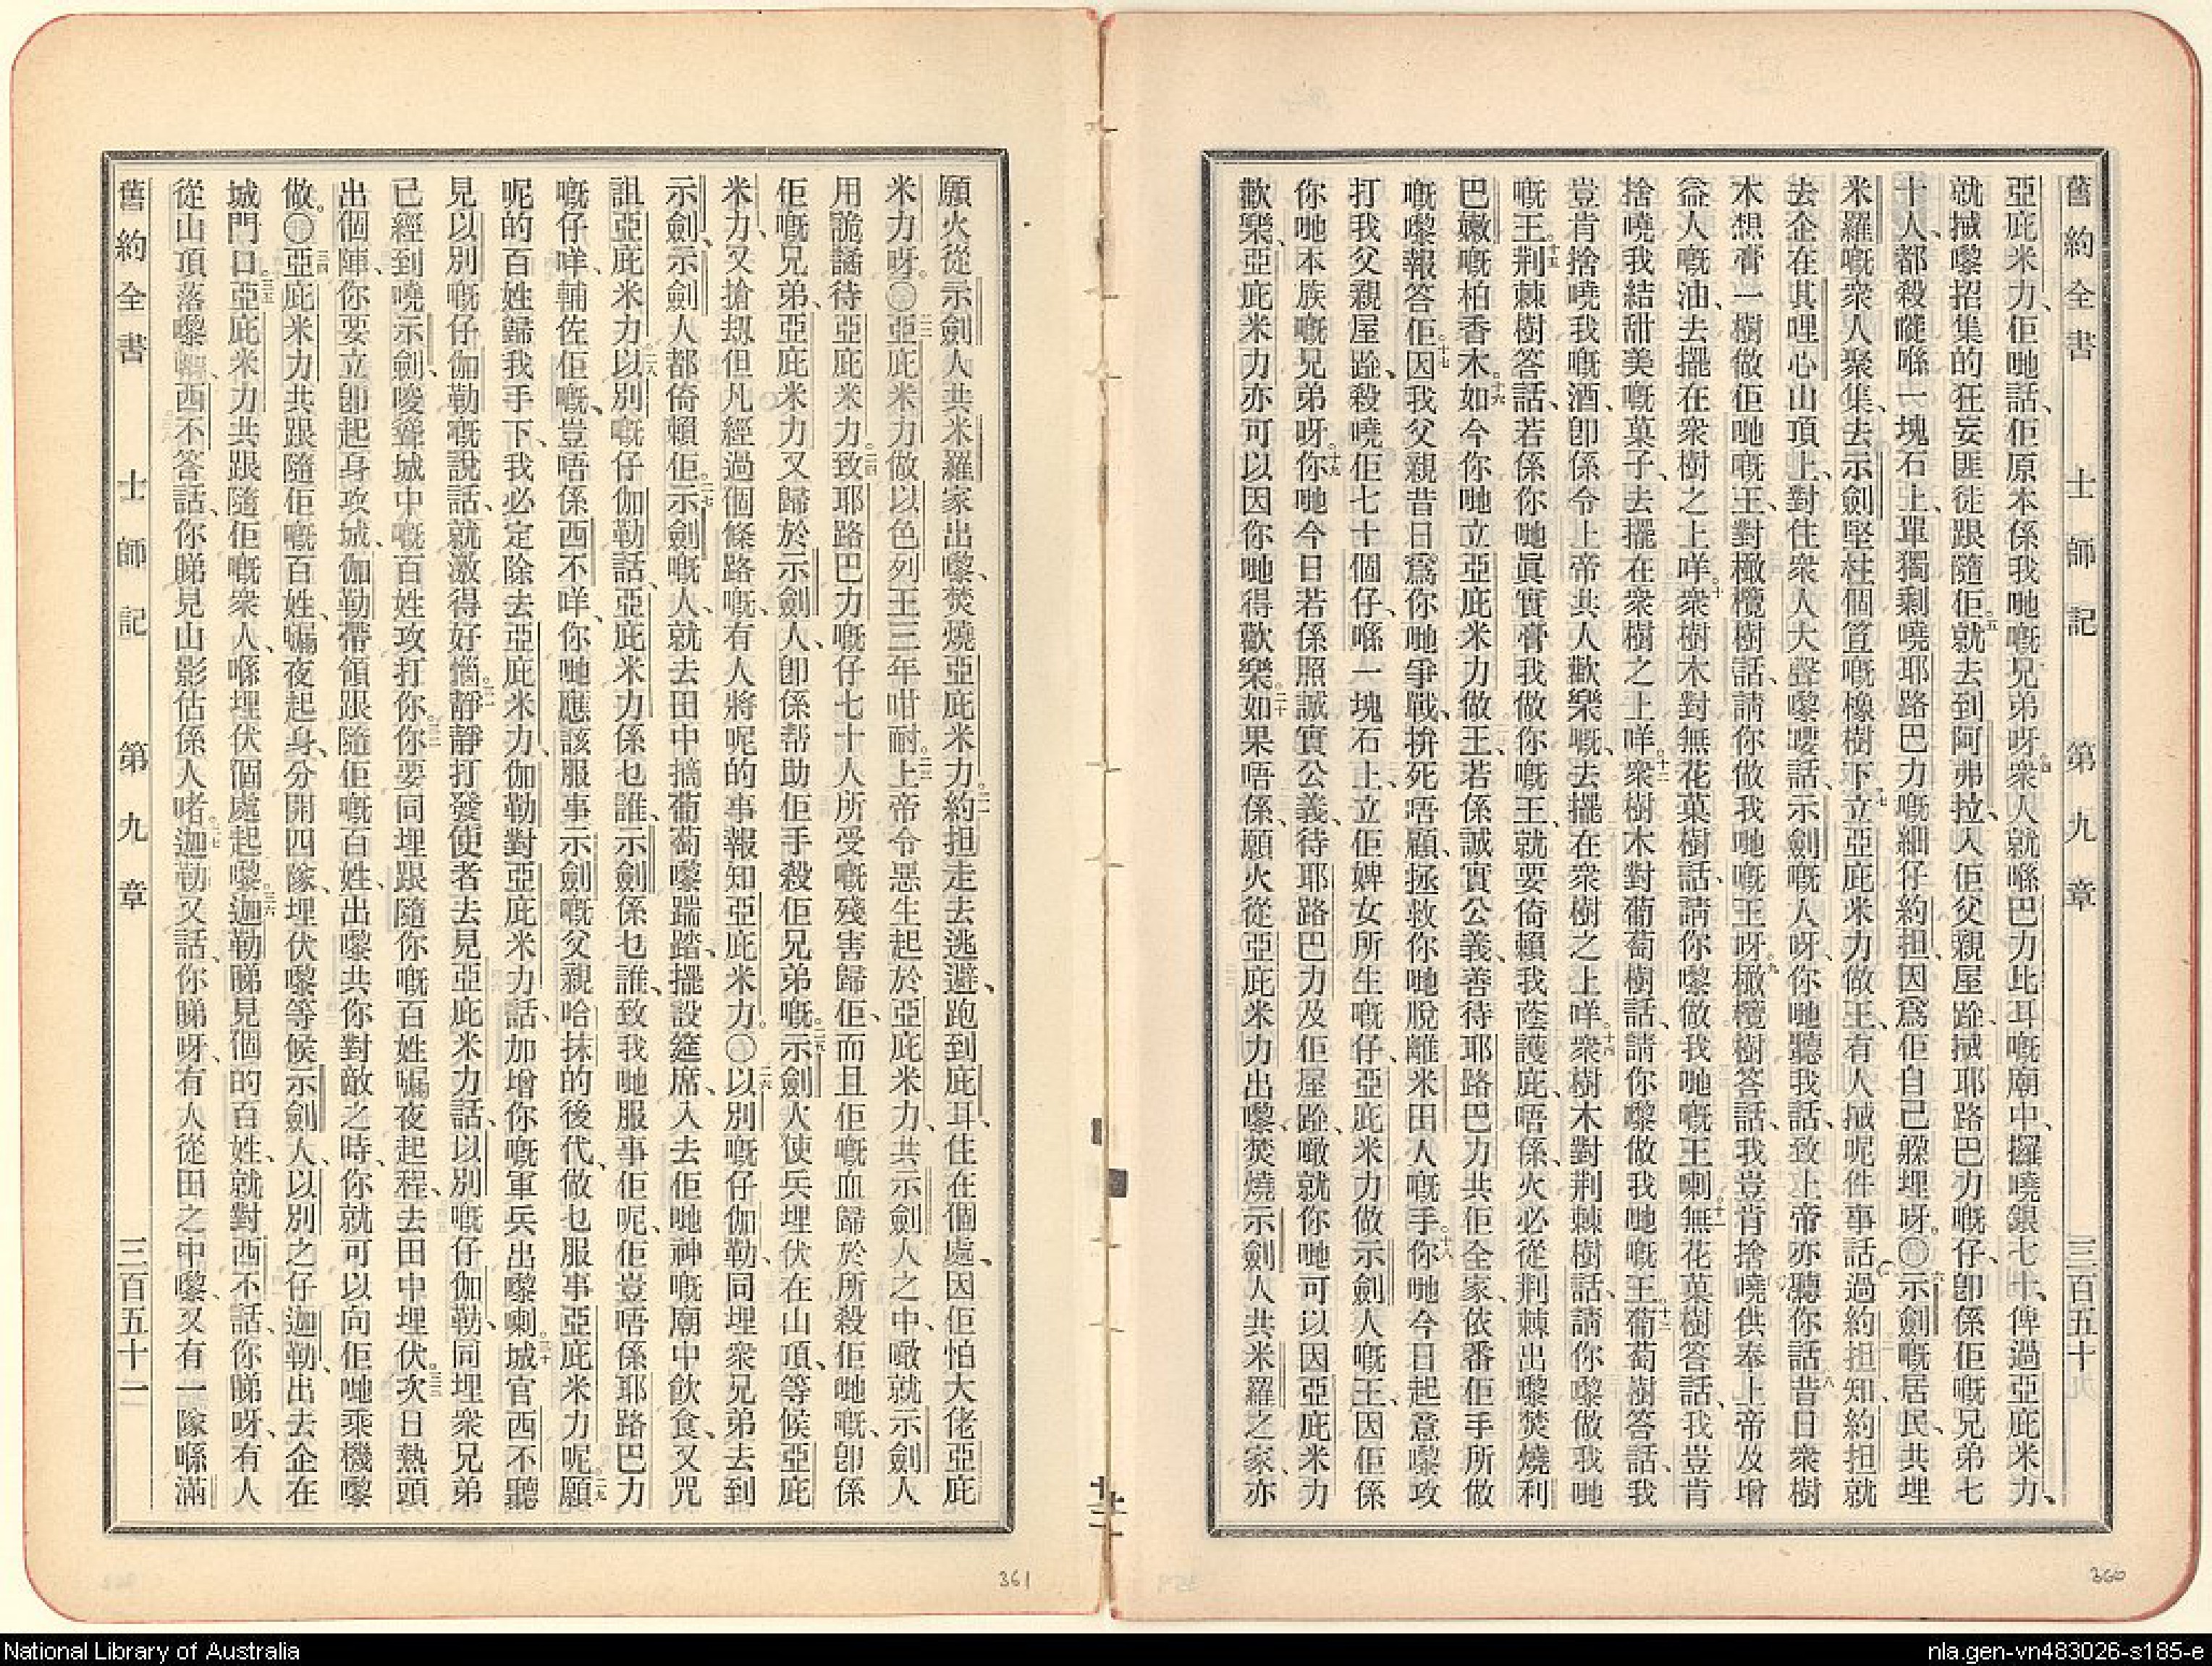 舊約全書 士師記 第九章 三百五十九
亞庇米力、佢哋話、佢原本係我哋嘅兄弟呀。四衆人就喺巴力比耳嘅廟中、攞嘵銀七十、俾過亞庇米力、
就搣嚟招集的狂妄匪徒跟隨佢。五就去到阿弗拉、入佢父親屋踰、搣耶路巴力嘅仔、卽係佢嘅兄弟七
十人、都殺嘥喺一塊石上、單獨剩嘵耶路巴力嘅細仔約担、因爲佢自己躱埋呀。○六示劍嘅居民、共埋
米羅嘅衆人聚集、去示劍堅柱個笪嘅橡樹下、立亞庇米力做王。七有人搣呢件事話過約担知、約担就
去企在其哩心山頂上、對住衆人大聲嚟嘤話、示劍嘅人呀、你哋聽我話、致上帝亦聽你話。八昔日衆樹
木想膏一樹做佢哋嘅王、對橄欖樹話、請你做我哋嘅王呀。九橄欖樹答話、我豈肯捨嘵供奉上帝及增
益人嘅油、去擺在衆樹之上咩。十衆樹木對無花菓樹話、請你嚟做我哋嘅王喇。十一無花菓樹答話、我豈肯
捨嘵我結甜美嘅菓子、去擺在衆樹之上咩。十二衆樹木對葡萄樹話、請你嚟做我哋嘅王。十三葡萄樹答話、我
豈肯捨嘵我嘅酒、卽係令上帝共人歡樂嘅、去擺在衆樹之上咩。十四衆樹木對荆棘樹話、請你嚟做我哋
嘅王。十五荆棘樹答話、若係你哋眞實膏我做你嘅王、就要倚賴我蔭護庇、唔係、火必從荆棘出嚟焚燒利
巴嫩嘅柏香木。十六如今你哋立亞庇米力做王、若係誠實公義、善待耶路巴力共佢全家、依番佢手所做
嘅嚟報答佢。十七因我父親昔日爲你哋爭戰、拚死唔顧、拯救你哋脫離米田人嘅手。十八你哋今日起意嚟攻
打我父親屋踰、殺嘵佢七十個仔、喺一塊石上、立佢婢女所生嘅仔、亞庇米力做示劍人嘅王、因佢係
你哋本族嘅兄弟呀。十九你哋今日若係照誠實公義、待耶路巴力及佢屋踰、噉就你哋可以因亞庇米力
歡樂、亞庇米力亦可以因你哋得歡樂。二十如果唔係、願火從亞庇米力出嚟、焚燒示劍人共米羅之家、亦
360
願火從示劍人共米羅家出嚟、焚燒亞庇米力。二一約担走去逃避、跑到庇耳、住在個處、因佢怕大佬亞庇
米力呀。○二二亞庇米力做以色列王三年咁耐。二三上帝令惡生起於亞庇米力、共示劍人之中、噉就示劍人
用詭譎待亞庇米力。二四致耶路巴力嘅仔七十人所受嘅殘害歸佢、而且佢嘅血歸於所殺佢哋嘅、卽係
佢嘅兄弟、亞庇米力又歸於示劍人、卽係帮助佢手殺佢兄弟嘅。二五示劍人使兵埋伏在山頂、等候亞庇
米力、又搶刼但凡經過個條路嘅、有人將呢的事報知亞庇米力。○二六以別嘅仔伽勒、同埋衆兄弟去到
示劍、示劍人都倚賴佢。二七示劍嘅人、就去田中搞葡萄嚟踹踏、擺設筵席、入去佢哋神嘅廟中飮食、又咒
詛亞庇米力。二八以別嘅仔伽勒話、亞庇米力係乜誰、示劍係乜誰、致我哋服事佢呢、佢豈唔係耶路巴力
嘅仔咩、輔佐佢嘅、豈唔係西不咩、你哋應該服事示劍嘅父親哈抹的後代、做乜服事亞庇米力呢。二九願
呢的百姓歸我手下、我必定除去亞庇米力、伽勒對亞庇米力話、加增你嘅軍兵出嚟喇。三十城官西不聽
見以別嘅仔伽勒嘅說話、就激得好惱。三一靜靜打發使者去見亞庇米力話、以別嘅仔伽勒、同埋衆兄弟
已經到嘵示劍、唆聳城中嘅百姓攻打你。三二你要同埋跟隨你嘅百姓、𩥭夜起程、去田中埋伏。三三次日熱頭
出個陣、你要立卽起身攻城、伽勒帶領跟隨佢嘅百姓、出嚟共你對敵之時、你就可以向佢哋乘機嚟
做。○三四亞庇米力共跟隨佢嘅百姓、𩥭夜起身、分開四隊、埋伏嚟等候示劍人、以別之仔迦勒、出去企在
城門口。三五亞庇米力共跟隨佢嘅衆人、喺埋伏個處起嚟。三六迦勒睇見個的百姓、就對西不話、你睇呀、有人
從山頂落嚟、西不答話、你睇見山影估係人啫。三七迦勒又話、你睇呀、有人從田之中嚟、又有一隊喺滿
舊約全書 士師記 第九章 三百五十一
361
National Library of Australia
nla.gen-vn483026-s185-e